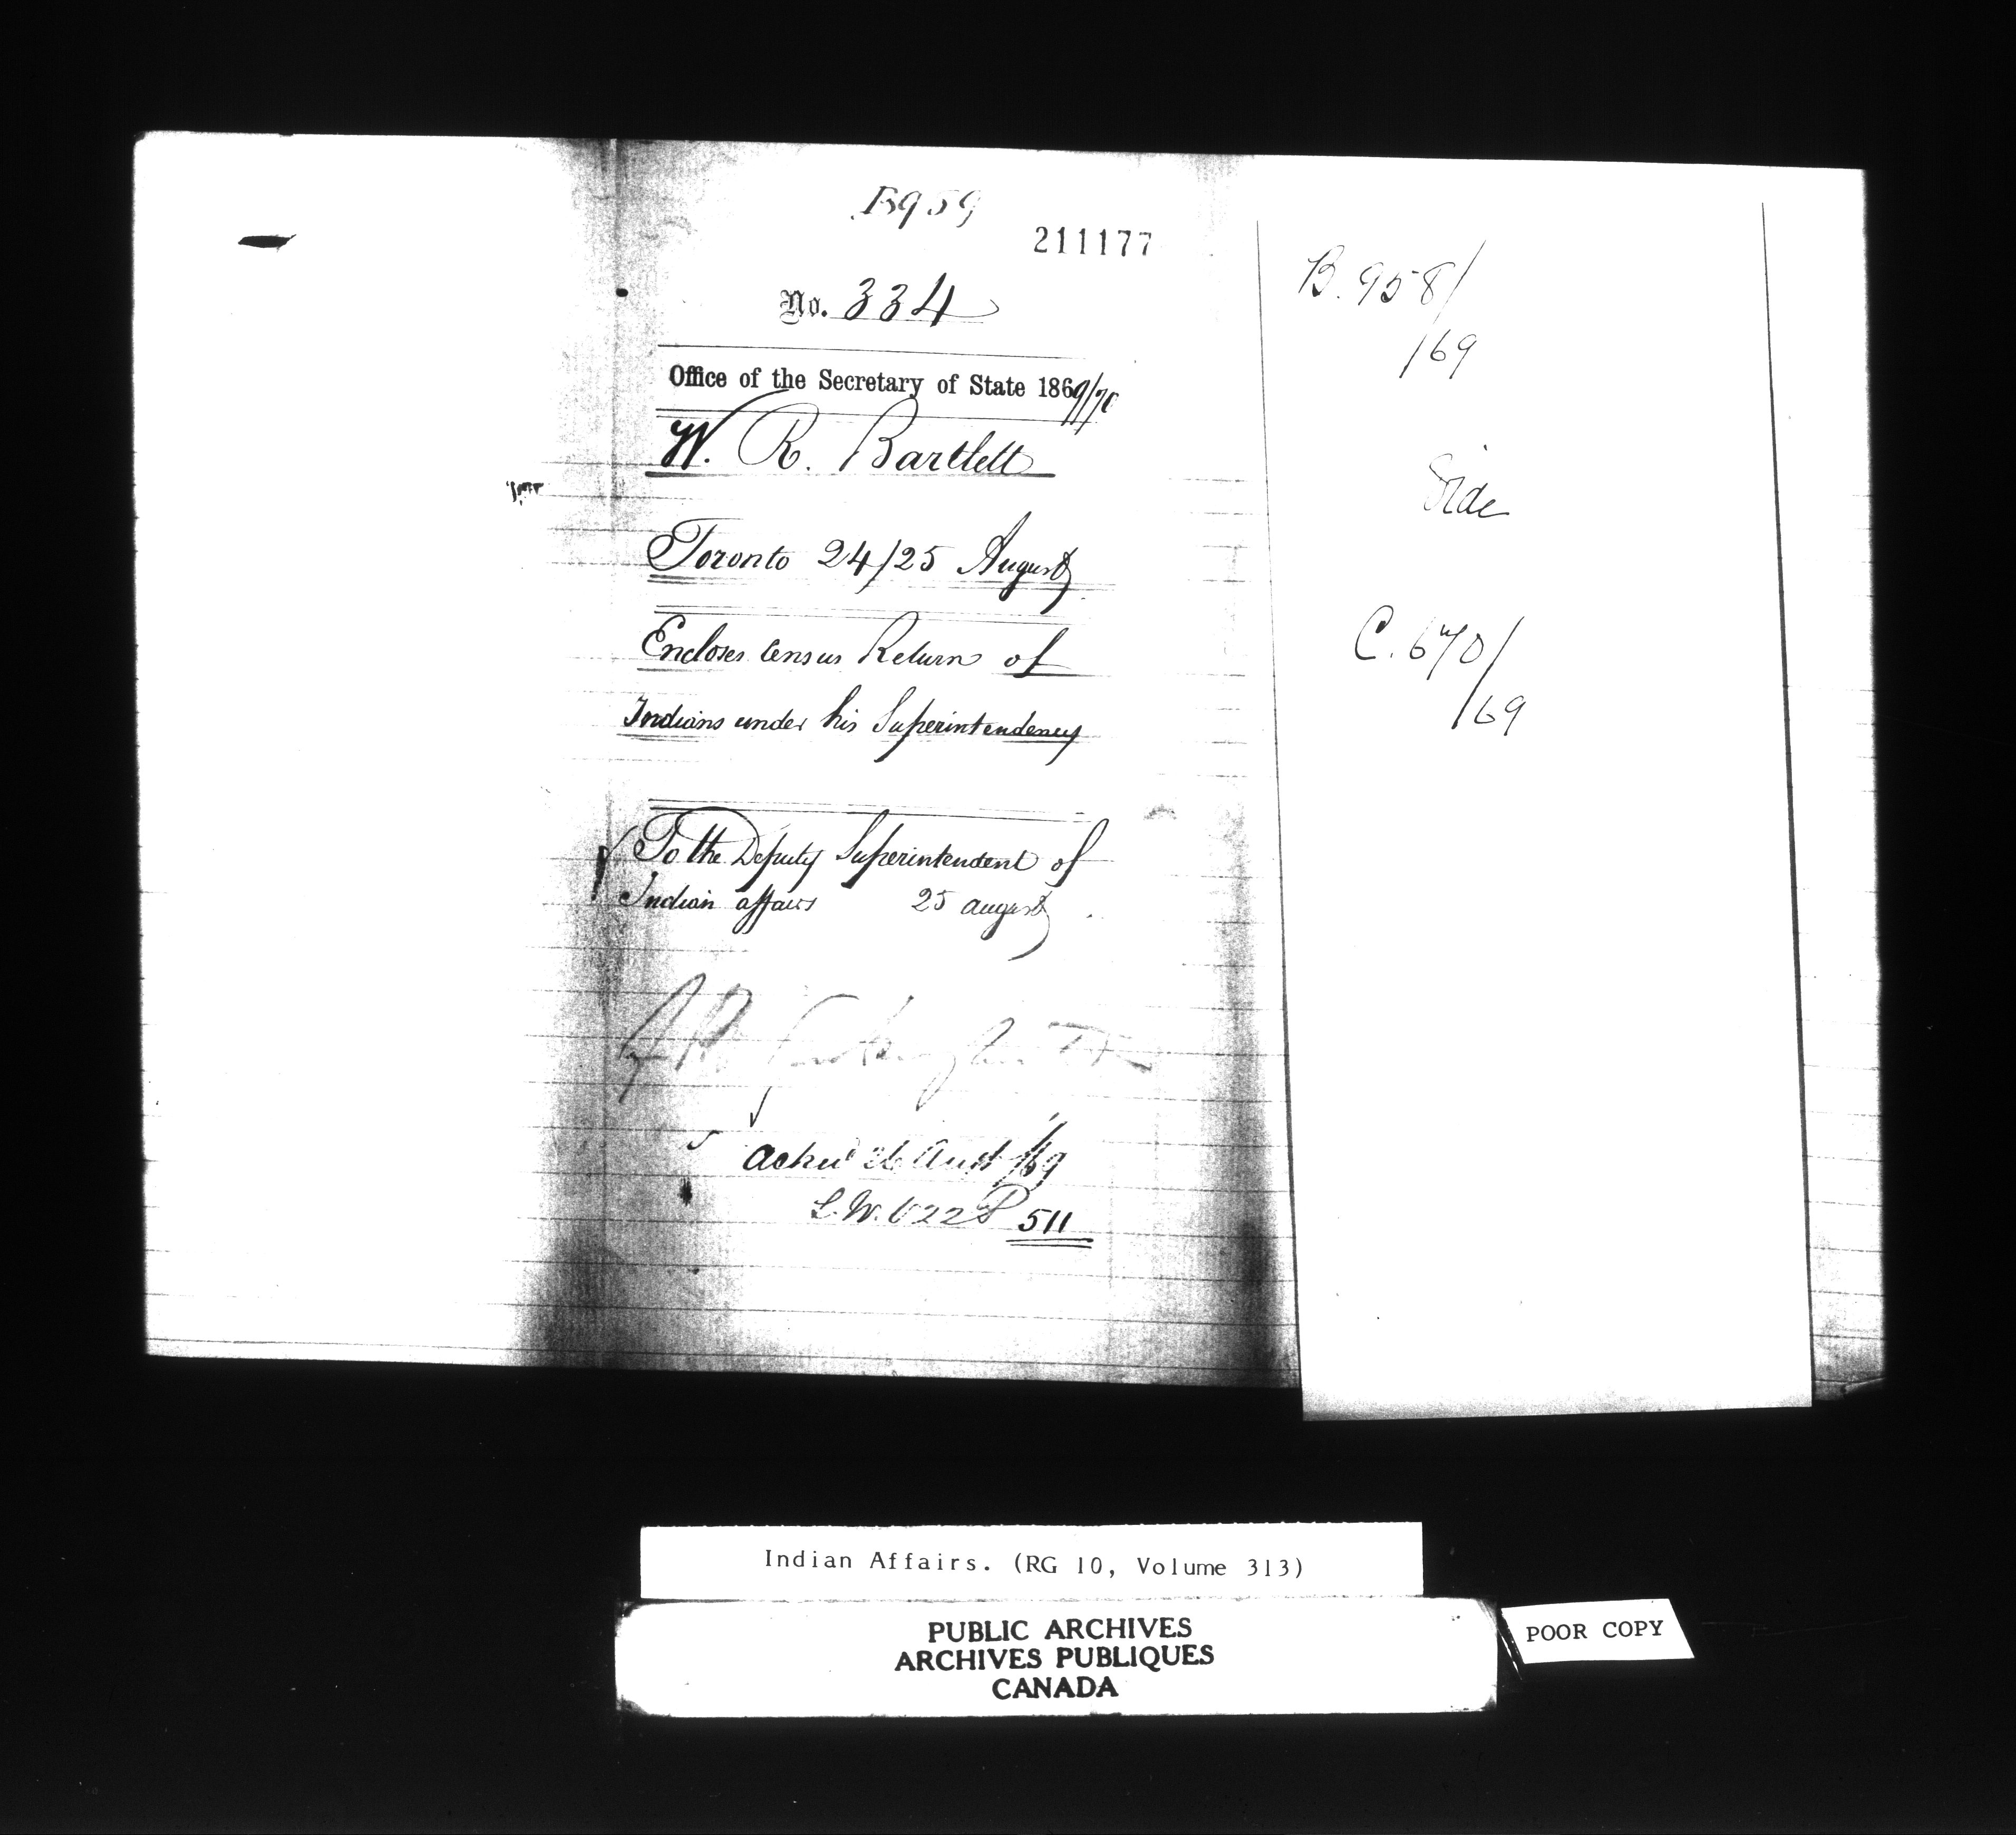 B959
211177
No. 334
Office of the Secretary of State 1869/70
W. R. Bartlett
Toronto 24/25 August
Encloses Census Return of
Indians under his Superintendency
To the Deputy Superintendent of
Indian affairs 25 august
Ackd 26 Aust /69
L.W. 622 P 511
B. 958/
/69
Side
C. 670/
/69
Indian Affairs. (RG 10, Volume 313)
PUBLIC ARCHIVES
ARCHIVES PUBLIQUES
CANADA
POOR COPY